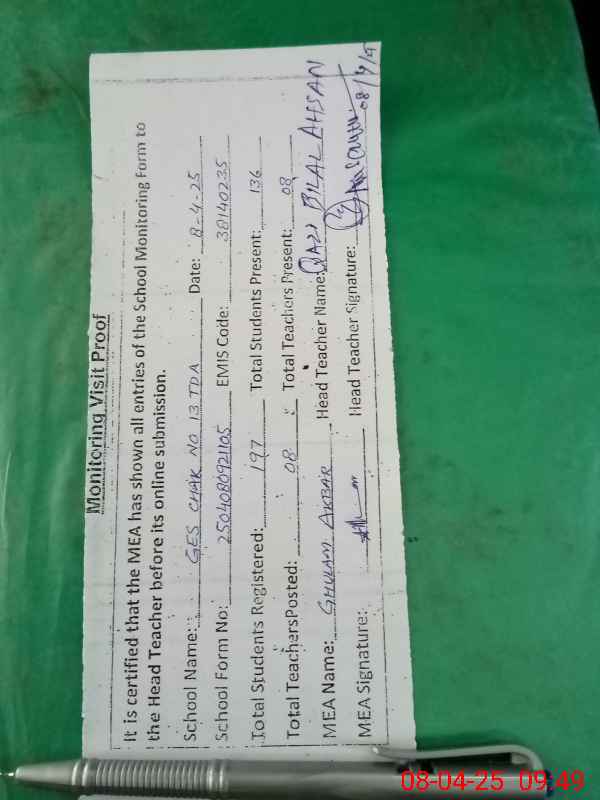 Monitoring Visit Proof
It is certified that the MEA has shown all entries of the School Monitoring Form to
the Head Teacher before its online submission.
School Name: GES CHAK NO 13 TDA Date: 8-4-25
School Form No: 2504080921105 EMIS Code: 38140235
Total Students Registered: 197 Total Students Present: 136
Total TeachersPosted: 08 Total Teachers Present: 08
MEA Name: GHULAM AKBAR Head Teacher Name: QAZI BILAL AHSAN
MEA Signature: Head Teacher Signature:
08-04-25 09:49